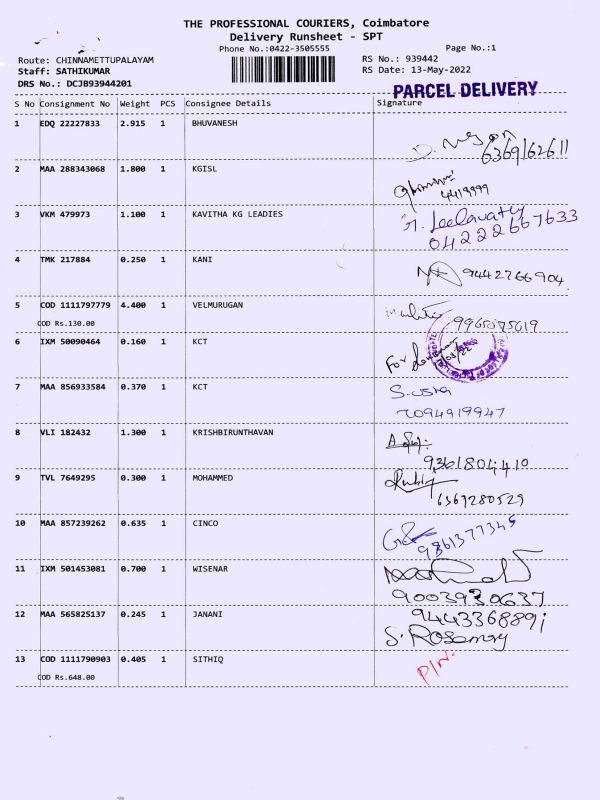 THE PROFESSIONAL COURIERS, Coimbatore
Delivery Runsheet - SPT
Phone No.:0422-3505555
Page No.:1
Route: CHINNAMETTUPALAYAM
RS No.: 939442
Staff: SATHIKUMAR
RS Date: 13-May-2022
DRS No.: DCJB93944201
PARCEL DELIVERY
S No Consignment No Weight PCS Consignee Details Signature
1 EDQ 22227833 2.915 1 BHUVANESH
6369162611
2 MAA 288343068 1.800 1 KGISL
4419999
3 VKM 479973 1.100 1 KAVITHA KG LEADIES
Leelavathy
04222667633
4 TMK 217884 0.250 1 KANI
9442766904
5 COD 1111797779 4.400 1 VELMURUGAN
COD Rs.130.00
9965075019
6 IXM 50090464 0.160 1 KCT
For
7 MAA 856933584 0.370 1 KCT
S. Usha
7094919947
8 VLI 182432 1.300 1 KRISHBIRUNTHAVAN
9361804410
9 TVL 7649295 0.300 1 MOHAMMED
6369280529
10 MAA 857239262 0.635 1 CINCO
9861377345
11 IXM 501453081 0.700 1 WISENAR
9003930637
12 MAA 565825137 0.245 1 JANANI
9443368891
S. Rosemary
13 COD 1111790903 0.405 1 SITHIQ
P/N.
COD Rs.648.00